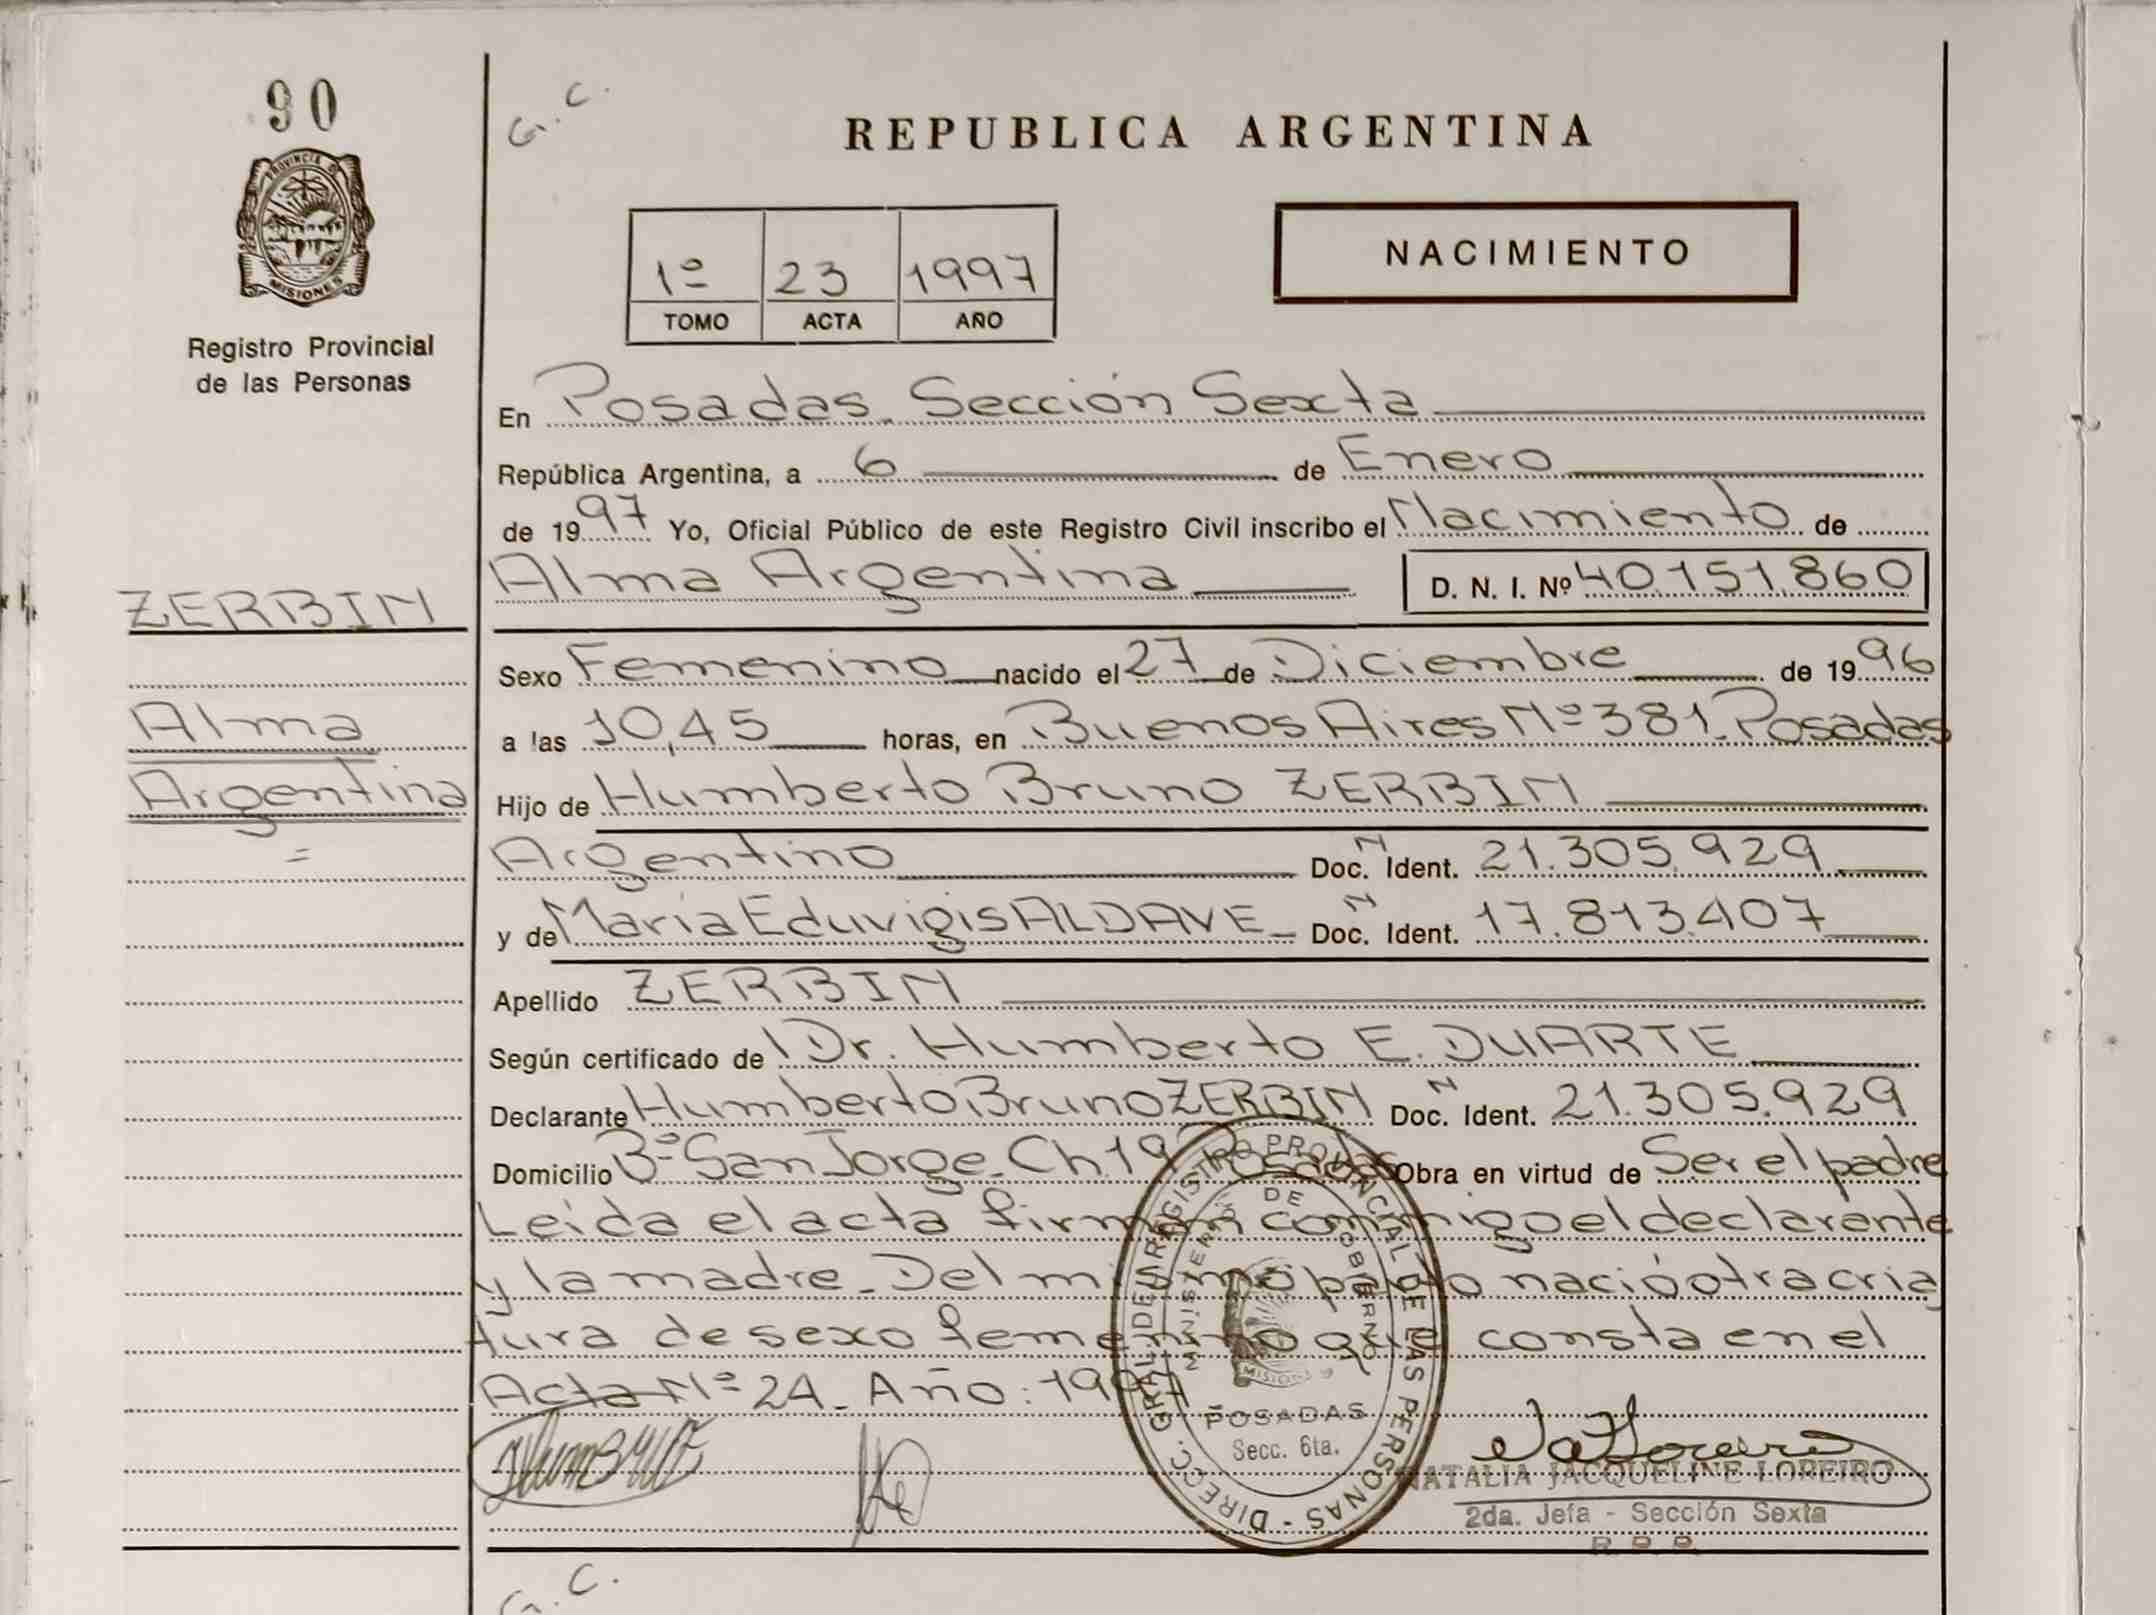 90
G. C.
REPUBLICA ARGENTINA
PROVINCIA DE
MISIONES
Registro Provincial
de las Personas
1º 23 1997
TOMO ACTA AÑO
NACIMIENTO
En Posadas. Sección Sexta
República Argentina, a 6 de Enero
de 1997 Yo, Oficial Público de este Registro Civil inscribo el Nacimiento de
Alma Argentina D. N. I. Nº 40.151.860
ZERBIN
Alma
Argentina
=
Sexo Femenino nacido el 27 de Diciembre de 1996
a las 10,45 horas, en Buenos Aires Nº 381. Posadas
Hijo de Humberto Bruno ZERBIN
Argentino Doc. N Ident. 21.305.929
y de María Eduvigis ALDAVE Doc. N Ident. 17.813.407
Apellido ZERBIN
Según certificado de Dr. Humberto E. DUARTE
Declarante Humberto Bruno ZERBIN Doc. N Ident. 21.305.929
Domicilio Bº San Jorge. Ch. 19 Posadas Obra en virtud de Ser el padre
Leída el acta firman conmigo el declarante
y la madre. Del mismo parto nació otra cria
tura de sexo femenino que consta en el
Acta Nº 24. Año: 1997
DIRECC. GRAL. DEL REGISTRO PROVINCIAL DE LAS PERSONAS -
MINISTERIO DE GOBIERNO
MISIONES
POSADAS
Secc. 6ta.
NATALIA JACQUELINE LOREIRO
2da. Jefa - Sección Sexta
R. P. P.
G. C.